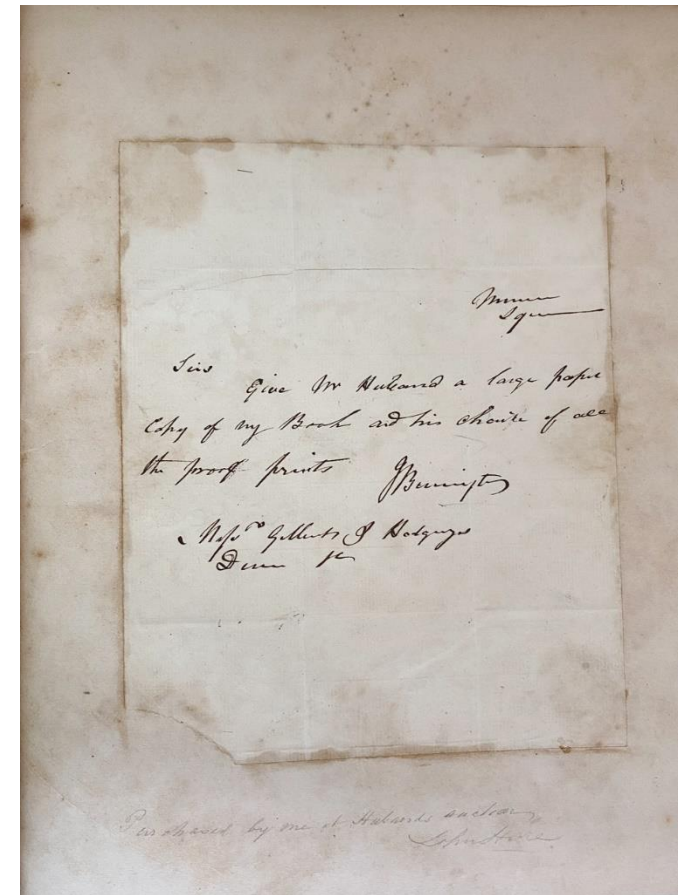 Square
Sirs
Give Mr Huband a large paper
Copy of my Book and his choice of all
the proof prints
Messrs Gilberts & Hodges
Dame St
Purchased by me at Huband's auction
John